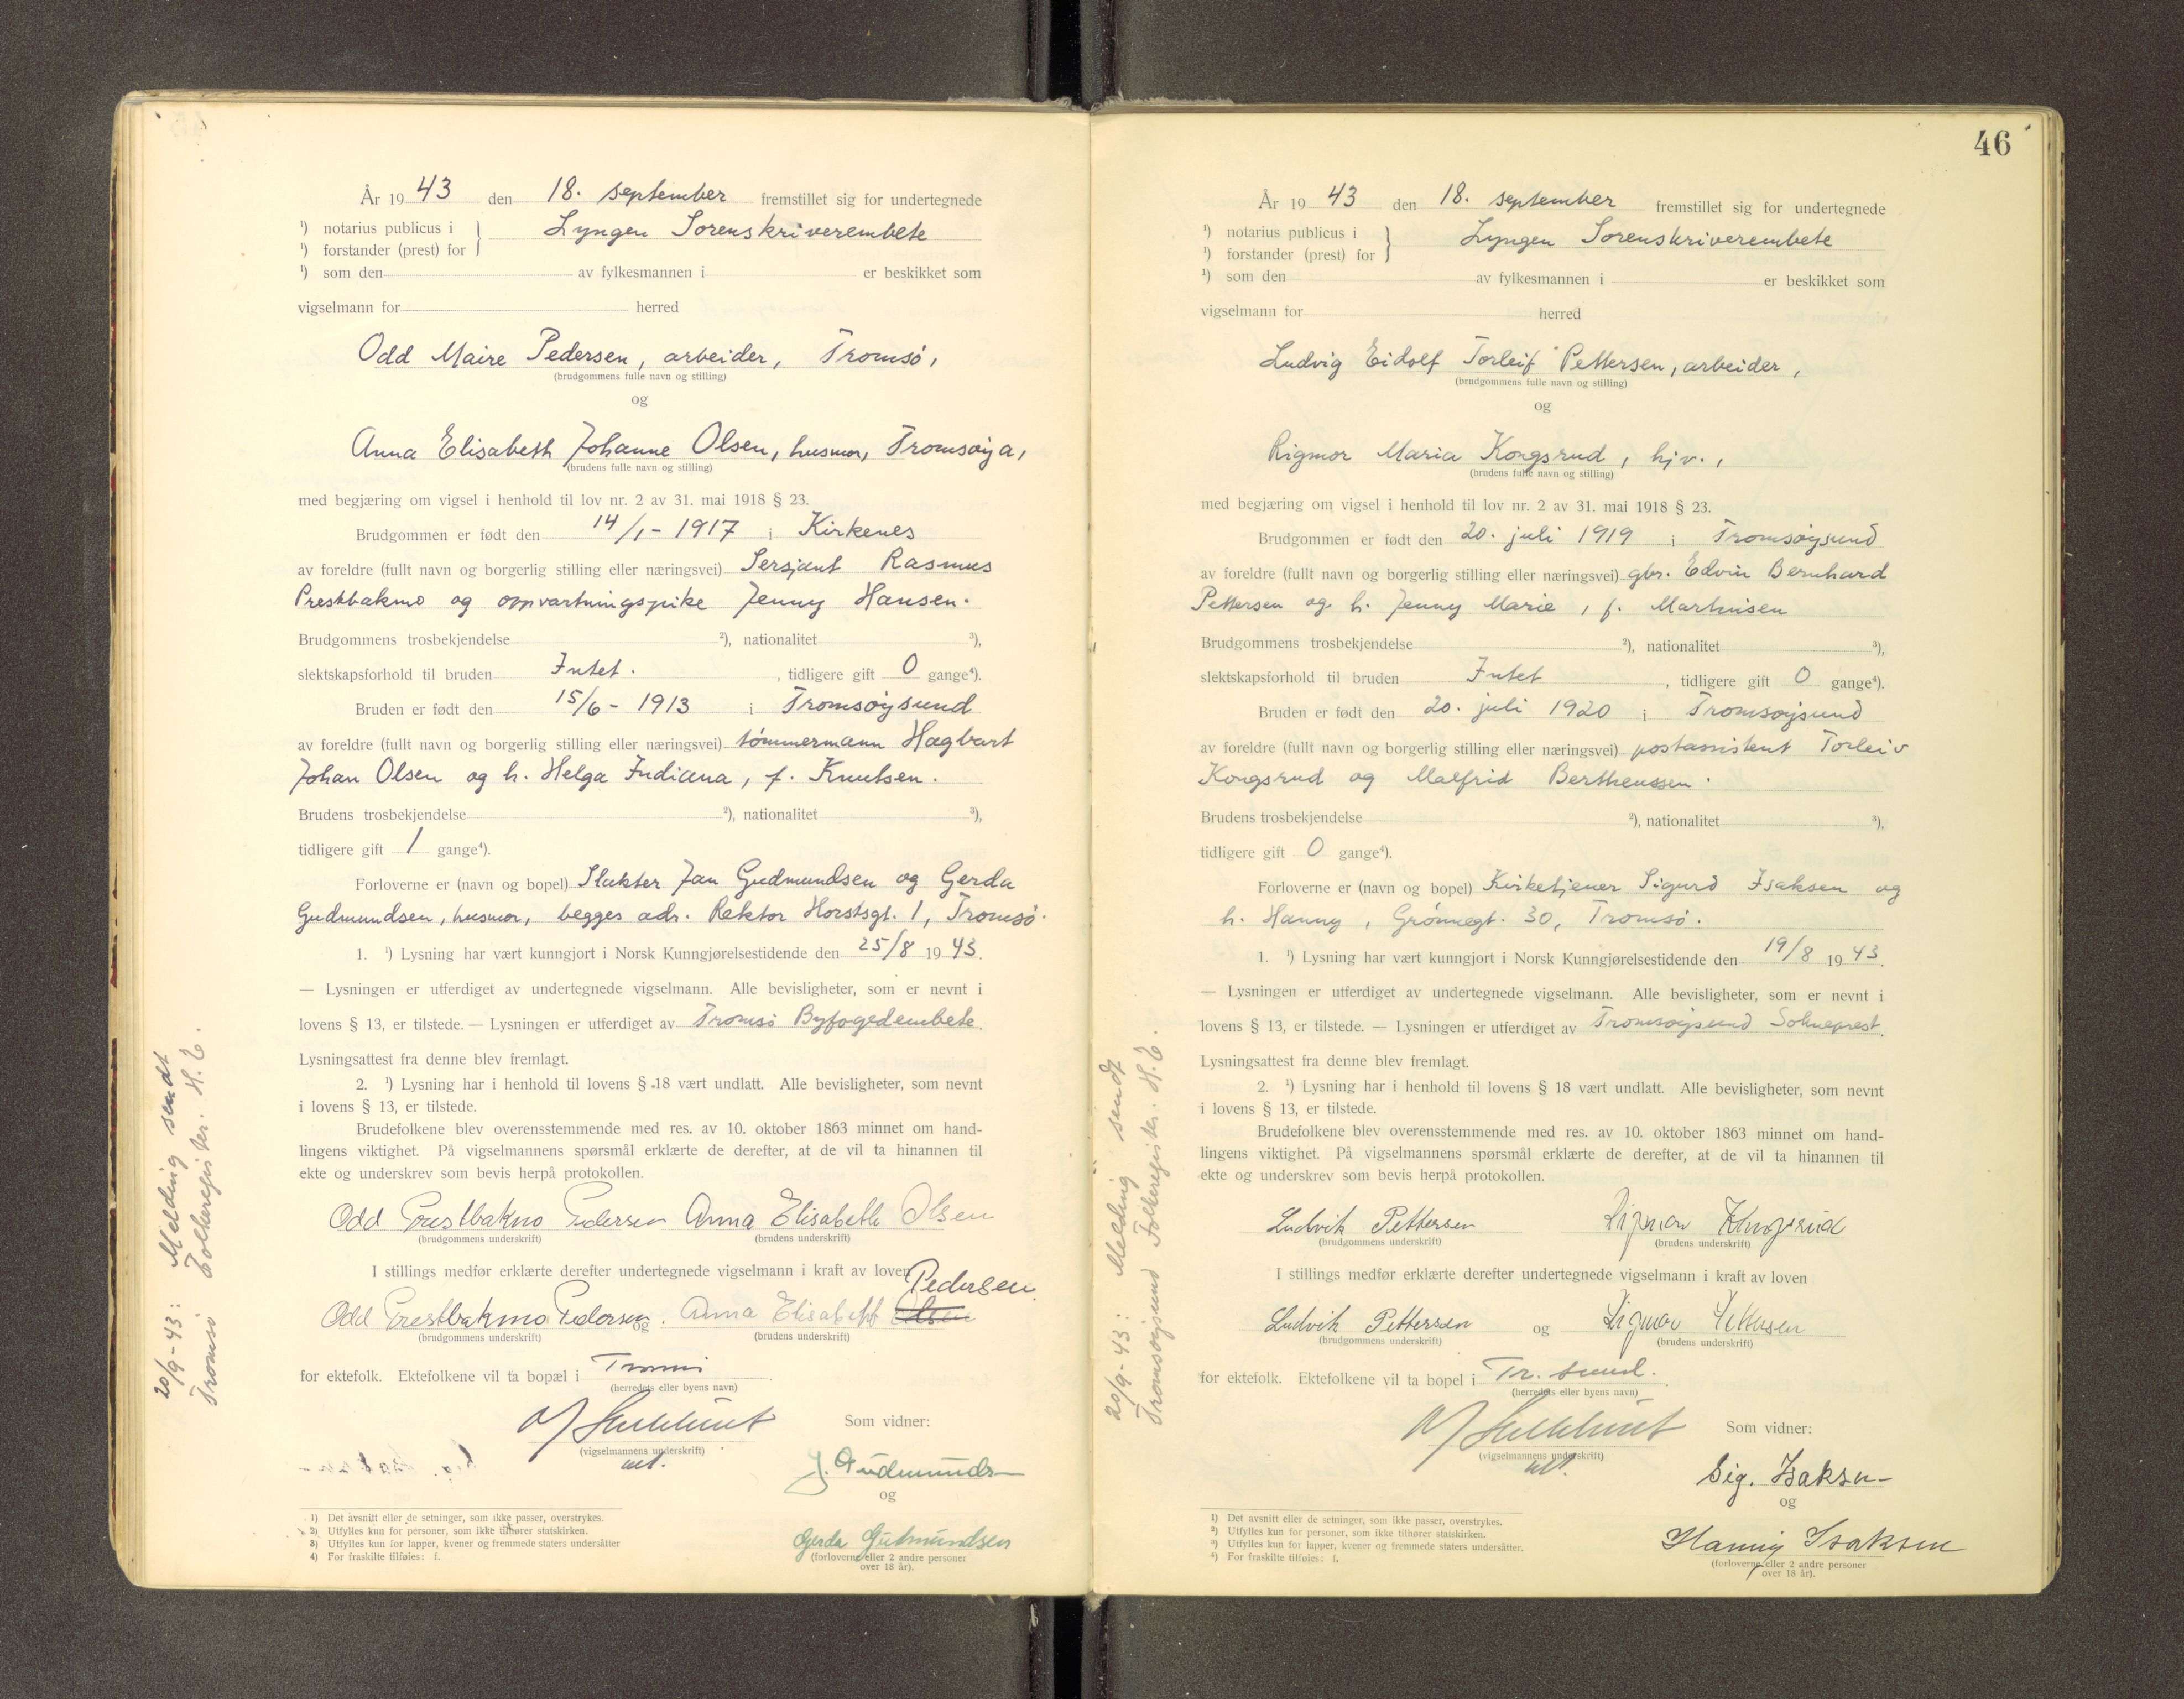 År 19 43 den 18. september fremstillet sig for undertegnede
¹) notarius publicus i
¹) forstander (prest) for } Lyngen Sorenskriverembete
¹) som den av fylkesmannen i er beskikket som
vigselmann for herred
Odd Maire Pedersen, arbeider, Tromsö,
(brudgommens fulle navn og stilling)
og
Anna Elisabeth Johanne Olsen, husmor, Tromsøya,
(brudens fulle navn og stilling)
med begjæring om vigsel i henhold til lov nr. 2 av 31. mai 1918 § 23.
Brudgommen er født den 14/1 - 1917 i Kirkenes
av foreldre (fullt navn og borgerlig stilling eller næringsvei) Sersjant Rasmus
Prestbakmo og oppvartningspike Jenny Hansen.
Brudgommens trosbekjendelse ²), nationalitet ³),
slektskapsforhold til bruden Intet. , tidligere gift 0 gange⁴).
Bruden er født den 15/6 - 1913 i Tromsøysund
av foreldre (fullt navn og borgerlig stilling eller næringsvei) tömmermann Hagbart
Johan Olsen og h. Helga Indiana, f. Knutsen.
Brudens trosbekjendelse ²), nationalitet ³),
tidligere gift 1 gange⁴).
Forloverne er (navn og bopel) Slakter Jan Gudmundsen og Gerda
Gudmundsen, husmor, begges adr. Rektor Horstsgt. 1, Tromsö.
1. ¹) Lysning har vært kunngjort i Norsk Kunngjørelsestidende den 25/8 19 43.
— Lysningen er utferdiget av undertegnede vigselmann. Alle bevisligheter, som er nevnt i
lovens § 13, er tilstede. — Lysningen er utferdiget av Tromsö Byfogedembete.
Lysningsattest fra denne blev fremlagt.
2. ¹) Lysning har i henhold til lovens § 18 vært undlatt. Alle bevisligheter, som nevnt
i lovens § 13, er tilstede.
Brudefolkene blev overensstemmende med res. av 10. oktober 1863 minnet om hand-
lingens viktighet. På vigselmannens spørsmål erklærte de derefter, at de vil ta hinannen til
ekte og underskrev som bevis herpå protokollen.
Odd Prestbakmo Pedersen Anna Elisabeth Olsen
(brudgommens underskrift) (brudens underskrift)
I stillings medfør erklærte derefter undertegnede vigselmann i kraft av loven
Pedersen.
Odd Prestbakmo Pedersen og Anna Elisabeth Olsen
(brudgommens underskrift) (brudens underskrift)
for ektefolk. Ektefolkene vil ta bopæl i Tromsö
(herredets eller byens navn)
Som vidner:
(vigselmannens underskrift)
J. Gudmunds
og
Gerda Gudmundsen
(forloverne eller 2 andre personer
over 18 år).
1) Det avsnitt eller de setninger, som ikke passer, overstrykes.
2) Utfylles kun for personer, som ikke tilhører statskirken.
3) Utfylles kun for lapper, kvener og fremmede staters undersåtter
4) For fraskilte tilføies: f.
20/9-43: Melding sendt
Tromsö Folkeregister. H.E.
46
År 19 43 den 18. september fremstillet sig for undertegnede
¹) notarius publicus i
¹) forstander (prest) for } Lyngen Sorenskriverembete
¹) som den av fylkesmannen i er beskikket som
vigselmann for herred
Ludvig Eidolf Torleif Pettersen, arbeider,
(brudgommens fulle navn og stilling)
og
Rigmor Maria Kongsrud, hjv.,
(brudens fulle navn og stilling)
med begjæring om vigsel i henhold til lov nr. 2 av 31. mai 1918 § 23.
Brudgommen er født den 20. juli 1919 i Tromsøysund
av foreldre (fullt navn og borgerlig stilling eller næringsvei) gbr. Edvin Bernhard
Pettersen og h. Jenny Marie, f. Marthisen
Brudgommens trosbekjendelse ²), nationalitet ³),
slektskapsforhold til bruden Intet , tidligere gift 0 gange⁴).
Bruden er født den 20. juli 1920 i Tromsøysund
av foreldre (fullt navn og borgerlig stilling eller næringsvei) postassistent Torleiv
Kongsrud og Malfrid Bertheussen.
Brudens trosbekjendelse ²), nationalitet ³),
tidligere gift 0 gange⁴).
Forloverne er (navn og bopel) Kirketjener Sigurd Isaksen og
h. Hanny, Grönnegt. 30, Tromsö.
1. ¹) Lysning har vært kunngjort i Norsk Kunngjørelsestidende den 19/8 19 43.
— Lysningen er utferdiget av undertegnede vigselmann. Alle bevisligheter, som er nevnt i
lovens § 13, er tilstede. — Lysningen er utferdiget av Tromsøysund Sokneprest.
Lysningsattest fra denne blev fremlagt.
2. ¹) Lysning har i henhold til lovens § 18 vært undlatt. Alle bevisligheter, som nevnt
i lovens § 13, er tilstede.
Brudefolkene blev overensstemmende med res. av 10. oktober 1863 minnet om hand-
lingens viktighet. På vigselmannens spørsmål erklærte de derefter, at de vil ta hinannen til
ekte og underskrev som bevis herpå protokollen.
Ludvik Pettersen Rigmor Kongsrud
(brudgommens underskrift) (brudens underskrift)
I stillings medfør erklærte derefter undertegnede vigselmann i kraft av loven
Ludvik Pettersen og Rigmor Pettersen
(brudgommens underskrift) (brudens underskrift)
for ektefolk. Ektefolkene vil ta bopel i Tr. sund.
(herredets eller byens navn)
Som vidner:
(vigselmannens underskrift)
Sig. Isaksen
og
Hanny Isaksen
(forloverne eller 2 andre personer
over 18 år).
1) Det avsnitt eller de setninger, som ikke passer, overstrykes.
²) Utfylles kun for personer, som ikke tilhører statskirken.
³) Utfylles kun for lapper, kvener og fremmede staters undersåtter.
⁴) For fraskilte tilføies: f.
20/9-43: Melding sendt
Tromsøysund Folkeregister. H.E.